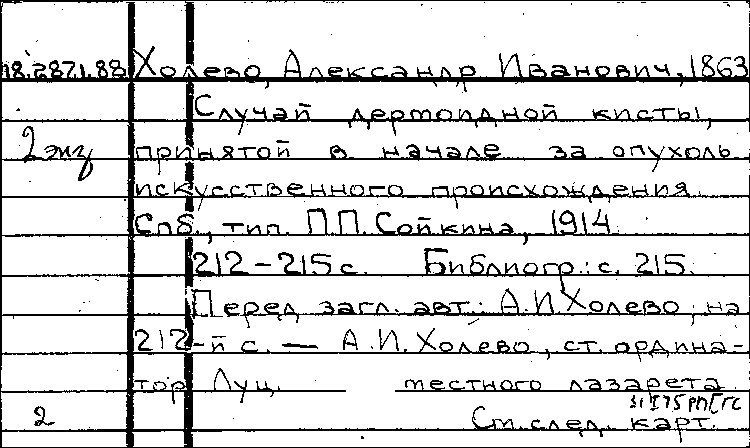 18.287.1.88 Холево, Александр Иванович, 1863
Случай дермоидной кисты,
2 экз принятой в начале за опухоль
искусственного происхождения.
Спб., тип. П.П. Сойкина, 1914.
212-215 с. Библиогр.: с. 215.
Перед загл. авт.: А.И. Холево; на
212-й с. — А.И. Холево, ст. ордина-
тор Луц. местного лазарета
2 См. след. карт.